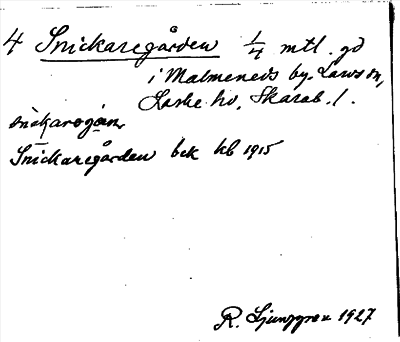 4 Snickaregården 1/4 mtl. gd
i Malmeneds by, Larvs sn,
Laske hd, Skarab. l.
snikaregån
Snickaregården bek kb 1915
R. Ljunggren 1927